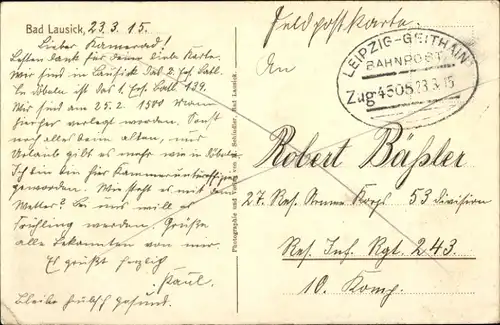 Bad Lausick, 23.3.15.
Lieber Kamerad!
Besten Dank für Deine liebe Karte.
Wir sind in Lausick das 2. Ers. Batl.
In Döbeln ist das 1. Ers. Batl. 139.
Wir sind am 25.2 1500 Mann
hierher verlegt worden. Sonst
noch alles beim alten, nur
Urlaub gibt es mehr wie in Döbeln.
Ich bin ein hier
geworden. Wie steht es mit dem
Wetter? Bei uns will es
Frühling werden. Grüße
alle Bekannten von mir.
Es grüßt herzlich
Paul.
Bleibe hübsch gesund.
Photographie und Verlag von Schindler, Bad Lausick.
Feldpostkarte.
An
LEIPZIG-GEITHAIN
BAHNPOST
Zug 4505 23.3.15
Robert Bäßler
27. Res. Armee Korps 53 Division
Res. Inf. Rgt. 243.
10. Komp.